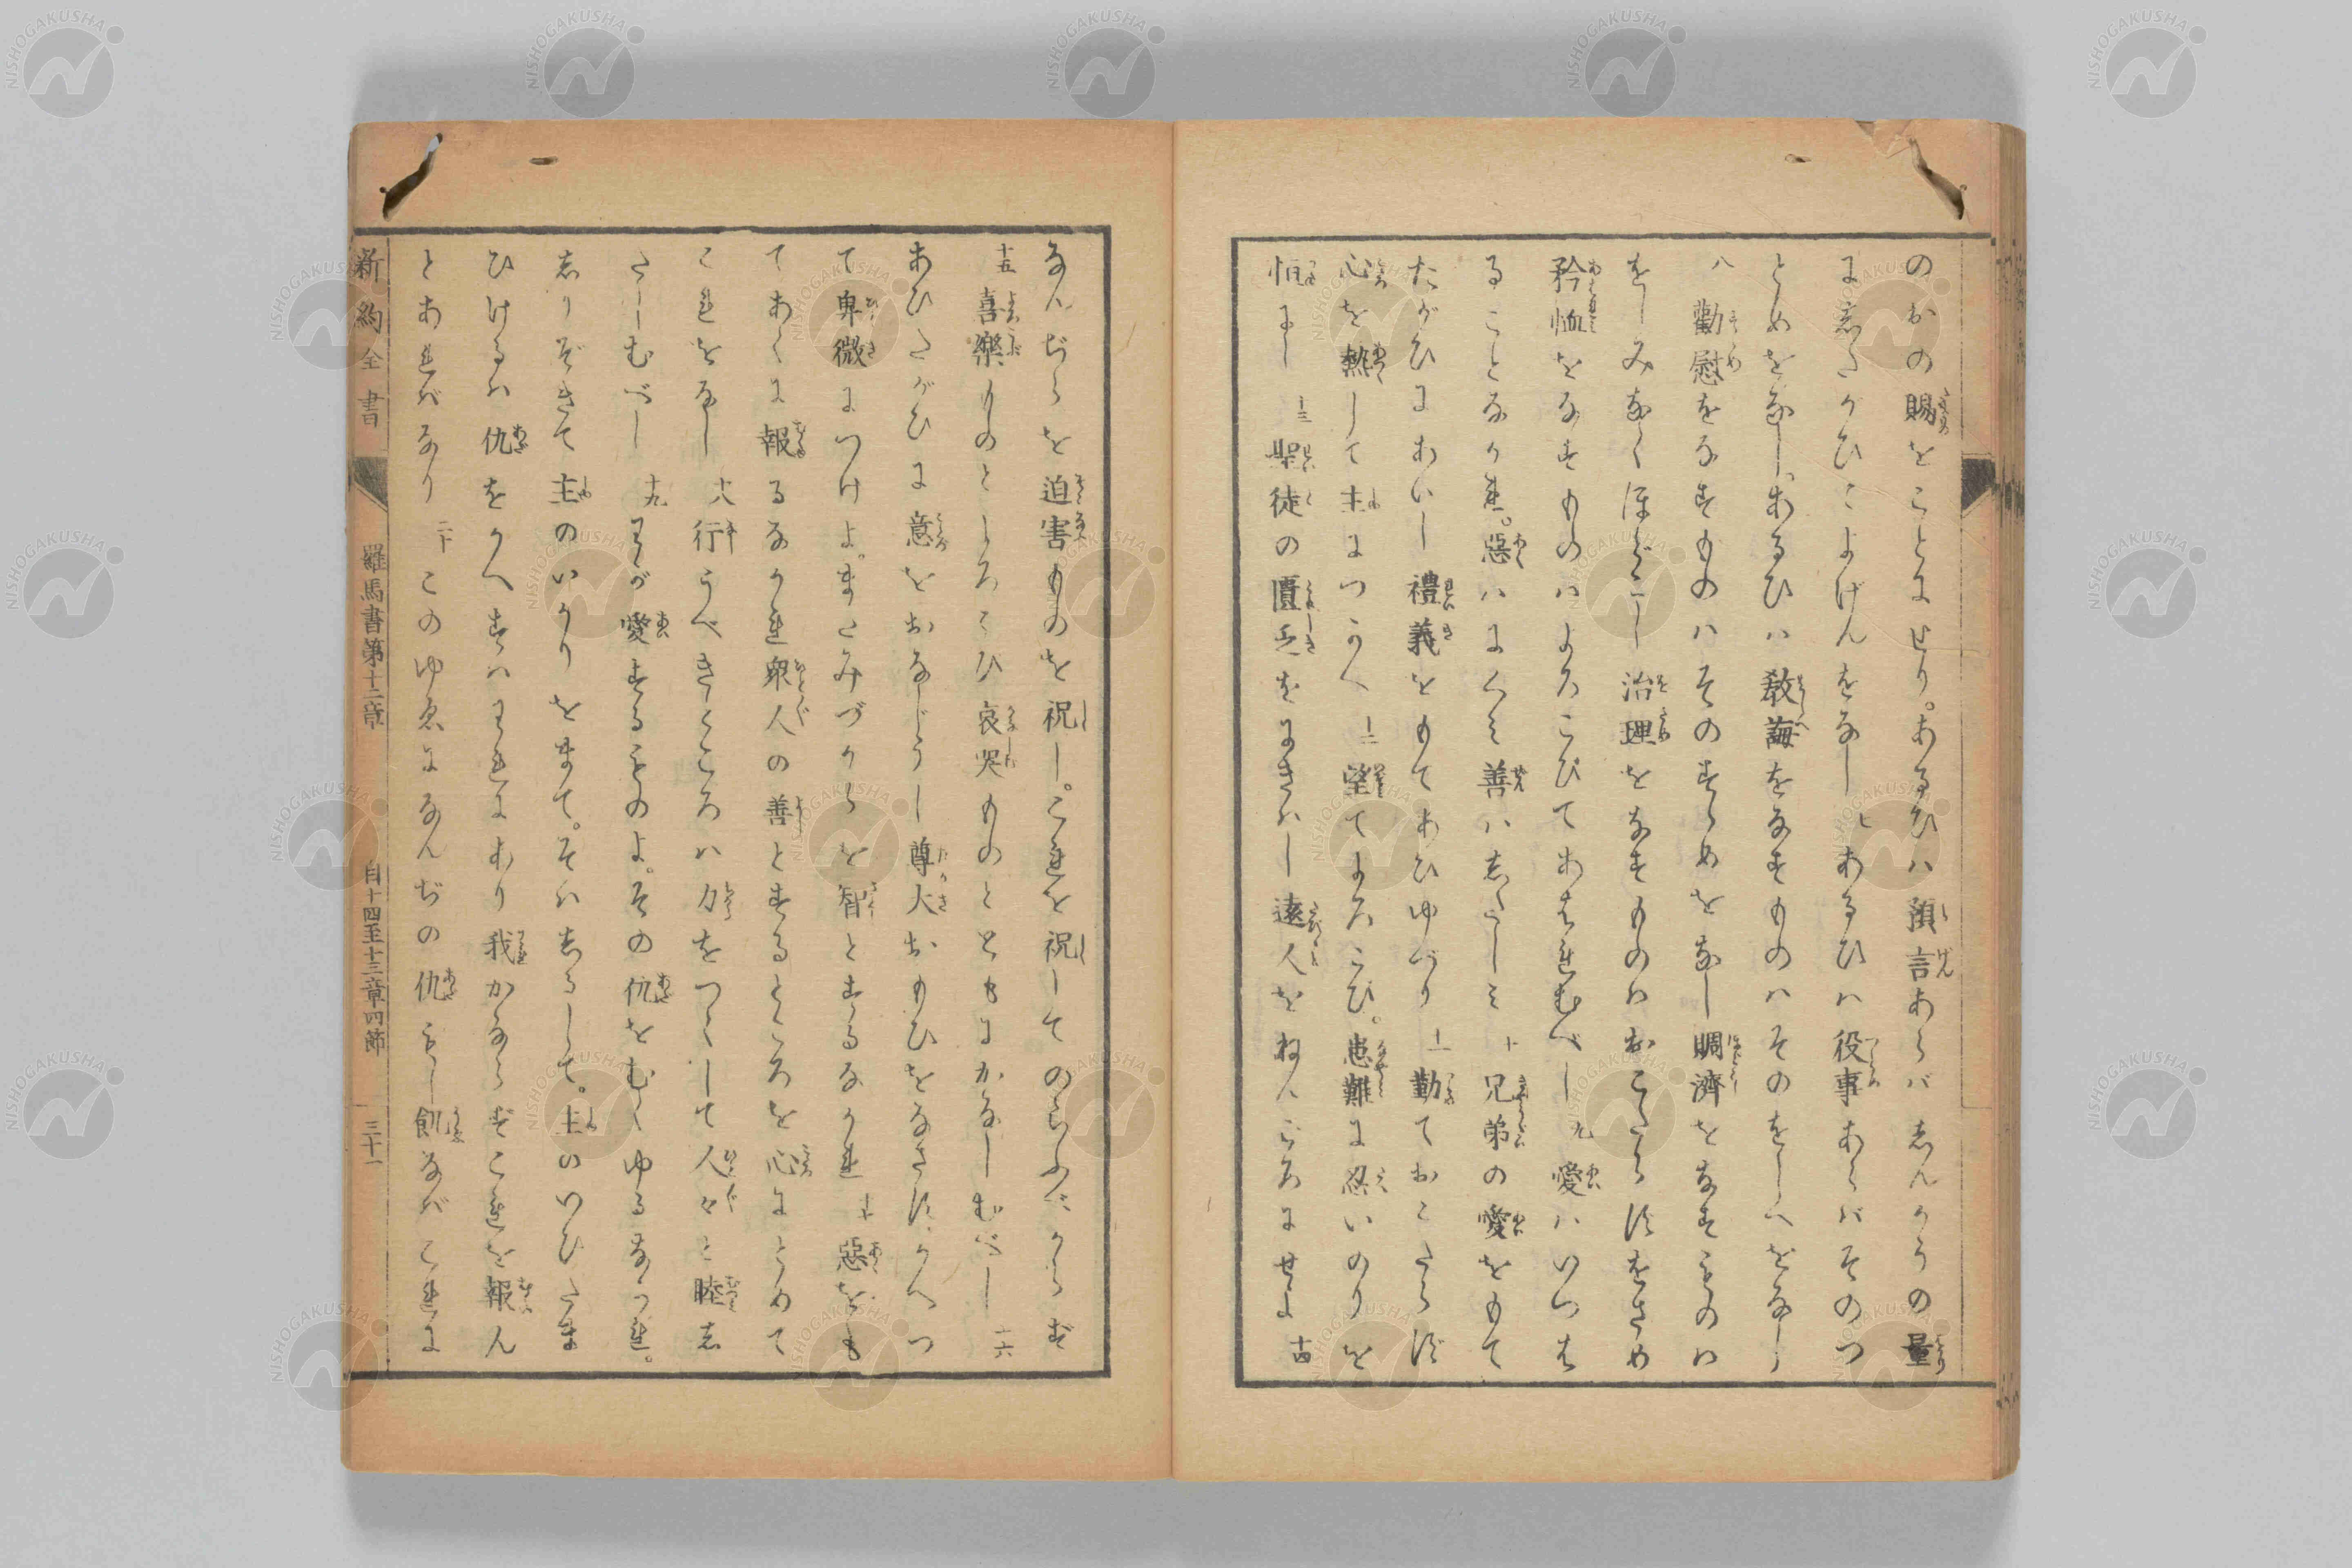 のおの賜をことにせり。あるひハ預言あらバ志んかうの量
に志たがひてよげんをなし 七 あるひハ役事あらバそのつ
とめをなし。あるひハ教誨をなすものハそのをしへをなし
八 勸慰をなすものハそのすゝめをなし賙濟をなすものハ
をしみなくほどこし治理をなすものハおこたらずをさめ
矜恤をなすものハよろこびてあはれむべし 九 愛ハいつは
ることなかれ。惡ハにくみ善ハ志たしみ 十 兄弟の愛をもて
たがひにあいし禮義をもてあひゆづり 十一 勤ておこたらず
心を熱して主につかへ 十二 望てよろこび。患難に忍いのりを
恒にし 十三 聖徒の匱乏をにきはし遠人をねんごろにせよ 十四
なんぢらを迫害ものを祝し。これを祝してのろふべからず
十五 喜樂ものとともによろこび哀哭ものとともにかなしむべし 十六
あひたがひに意をおなじうし尊大おもひをなさず。かへつ
て卑微につけよ。まさみづからを智とするなかれ 十七 惡をも
てあくに報るなかれ衆人の善とするところを心にとめて
これをなし 十八 行うべきところハ力をつくして人々と睦志
たしむべし 十九 わが愛するものよ。その仇をむくゆるなかれ。
志りぞきて主のいかりをまて。そハ志るして。主のいひたま
ひけるハ仇をかへすハわれにあり我かならずこれを報ん
とあれバなり 二十 このゆゑになんぢの仇もし飢なバこれに
新約全書 羅馬書第十二章 自十四至十三章四節 三十一